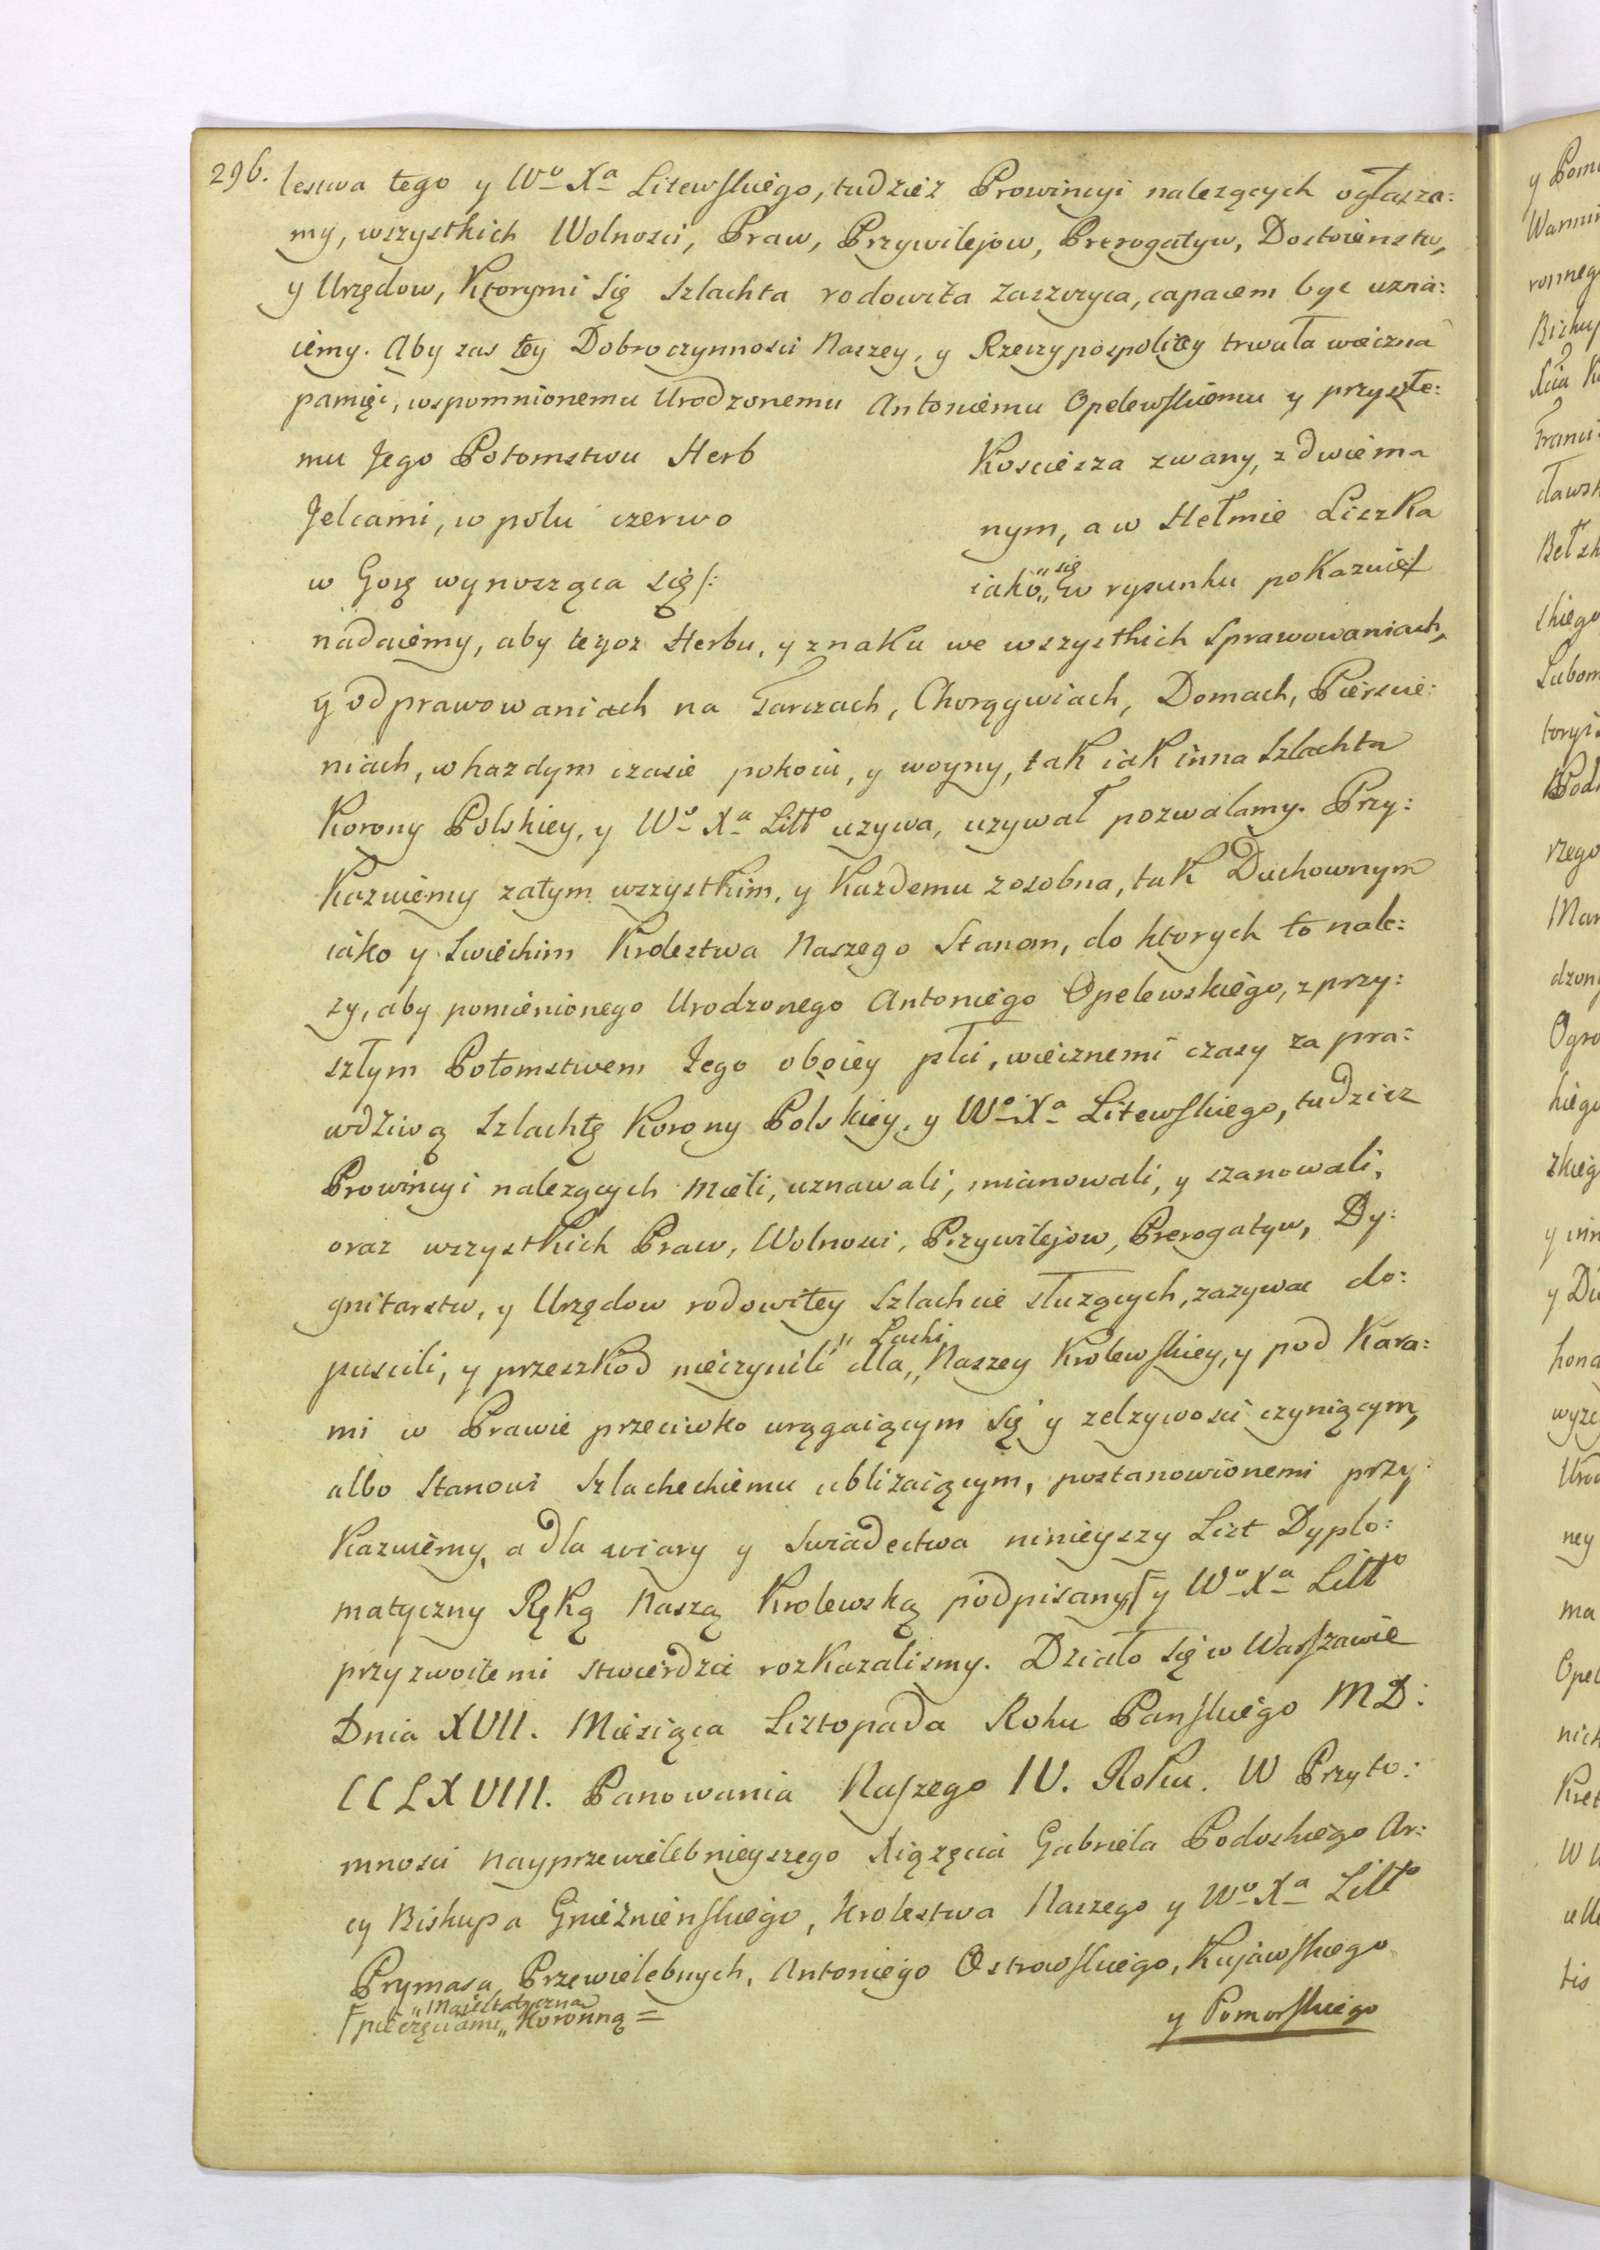 296. lestwa tego y Wo Xa Litewskiego, tudziez Prowincyi nalezących ogłasza:
my, wszystkich Wolnosci, Praw, Przywilejow, Prerogatyw, Dostoienstw,
y Urzędow, Ktorymi się Szlachta rodowita Zaszczyca, capacem byc uzna:
iemy. Aby zas tey Dobroczynnosci Naszey, y Rzeczypospolitey trwała wieczna
pamięć, wspomnionemu Urodzonemu Antoniemu Opelewskiemu y przyszłe:
mu Jego Potomstwu Herb Kosciesza zwany, z dwiema
Jelcami, w polu czerwo nym, a w Hełmie Liszka
w Gorę wynosząca się/: iako „się„ w rysunku pokazuie/
nadaiemy, aby tegoz Herbu, y znaku we wszystkich Sprawowaniach,
y odprawowaniach na Tarczach, Chorągwiach, Domach, Pierscie:
niach, w kazdym czasie pokoiu, y woyny, tak iak inna Szlachta
Korony Polskiey, y Wo Xa Litto uzywa, uzywał pozwalamy. Przy:
Kazuiemy zatym wszystkim, y Kazdemu zosobna, tak Duchownym
iako y Swieckim Krolestwa Naszego Stanom, do ktorych to nale:
zy, aby pomienionego Urodzonego Antoniego Opelewskiego, z przy:
szłym Potomstwem Jego oboiey płci, wiecznemi czasy za pra:
wdziwą Szlachtę Korony Polskiey, y Wo Xa Litewskiego, tudziez
Prowincyi nalezących mieli, uznawali, mianowali, y szanowali,
oraz wszystkich Praw, Wolnosci, Przywilejow, Prerogatyw, Dy:
gnitarstw, y Urzędow rodowitey Szlachcie słuzących, zazywac do:
puscili, y przeszkod nieczynili dla „Łaski„ Naszey Krolewskiey, y pod Kara:
mi w Prawie przeciwko urągaiącym się y zelzywosci czyniącym,
albo Stanowi Szlacheckiemu ubliżaiącym, postanowionemi przy:
Kazuiemy, a dla wiary y swiadectwa ninieyszy List Dyplo:
matyczny Ręką Naszą Krolewską podpisany/ y Wo Xa Litto
przyzwoitemi stwierdzic rozkazalismy. Działo się w Warszawie
Dnia XVII. Miesiąca Listopada Roku Panskiego MD:
CCLXVIII. Panowania Naszego IV. Roku. W Przyto:
mnosci Nayprzewielebnieyszego Xiązęcia Gabriela Podoskiego Ar:
cy Biskupa Gnieźnienskiego, Krolestwa Naszego y Wo Xa Litto
Prymasa, Przewielebnych, Antoniego Ostrowskiego, Kujawskiego
/pieczęciami „Maiestatyczna„ Koronną =
y Pomorskiego